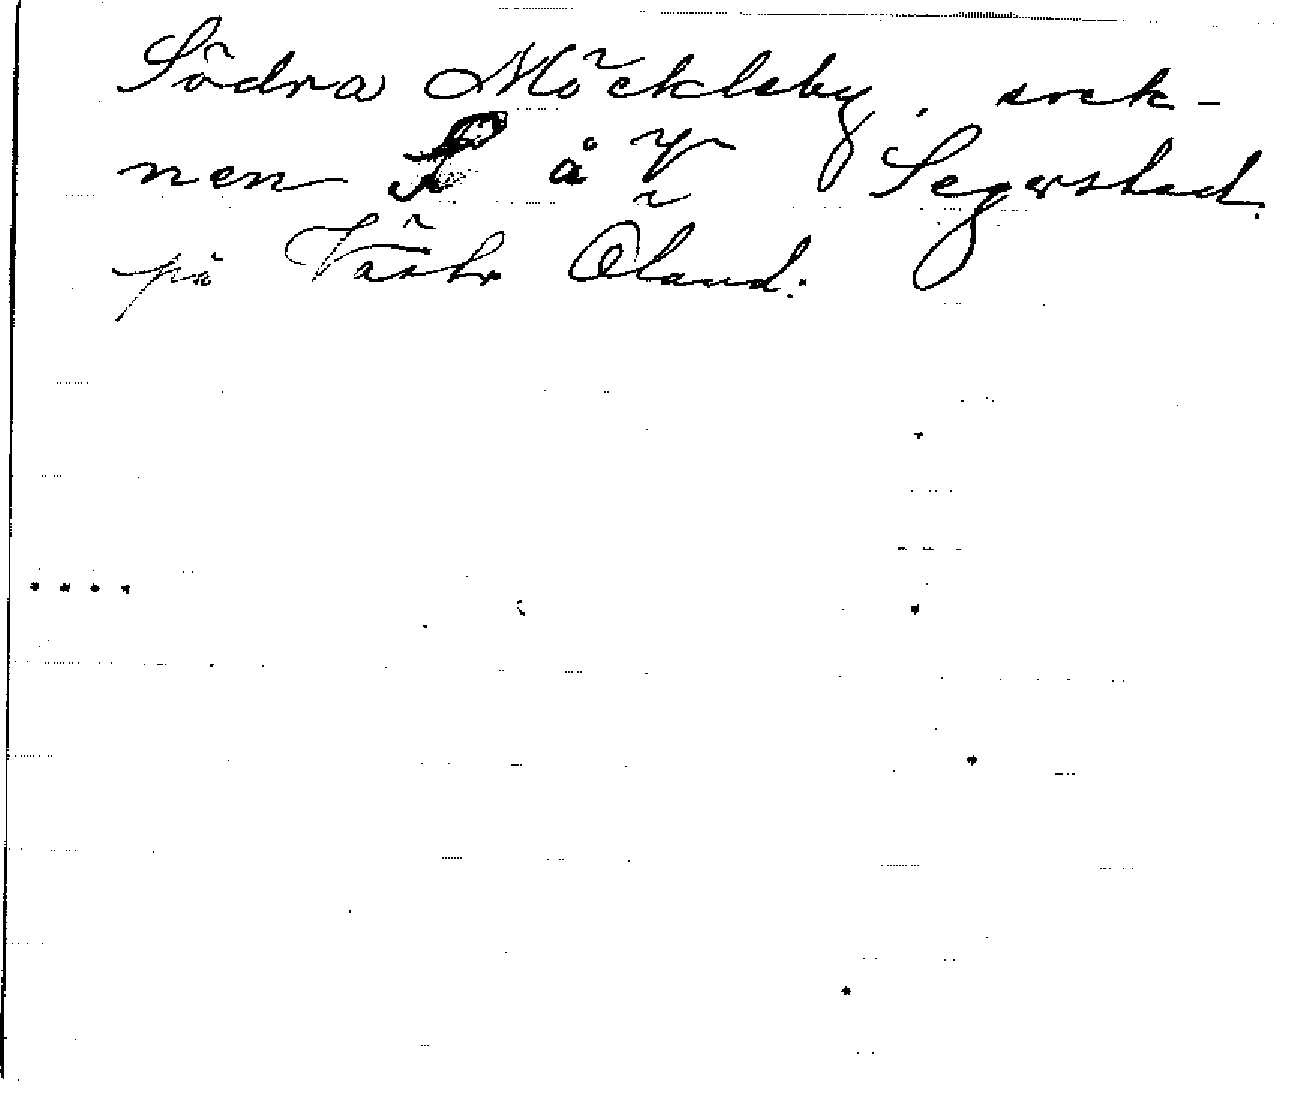 Södra Möckleby, sock-
nen å Segerstad.
på Västr Öland.